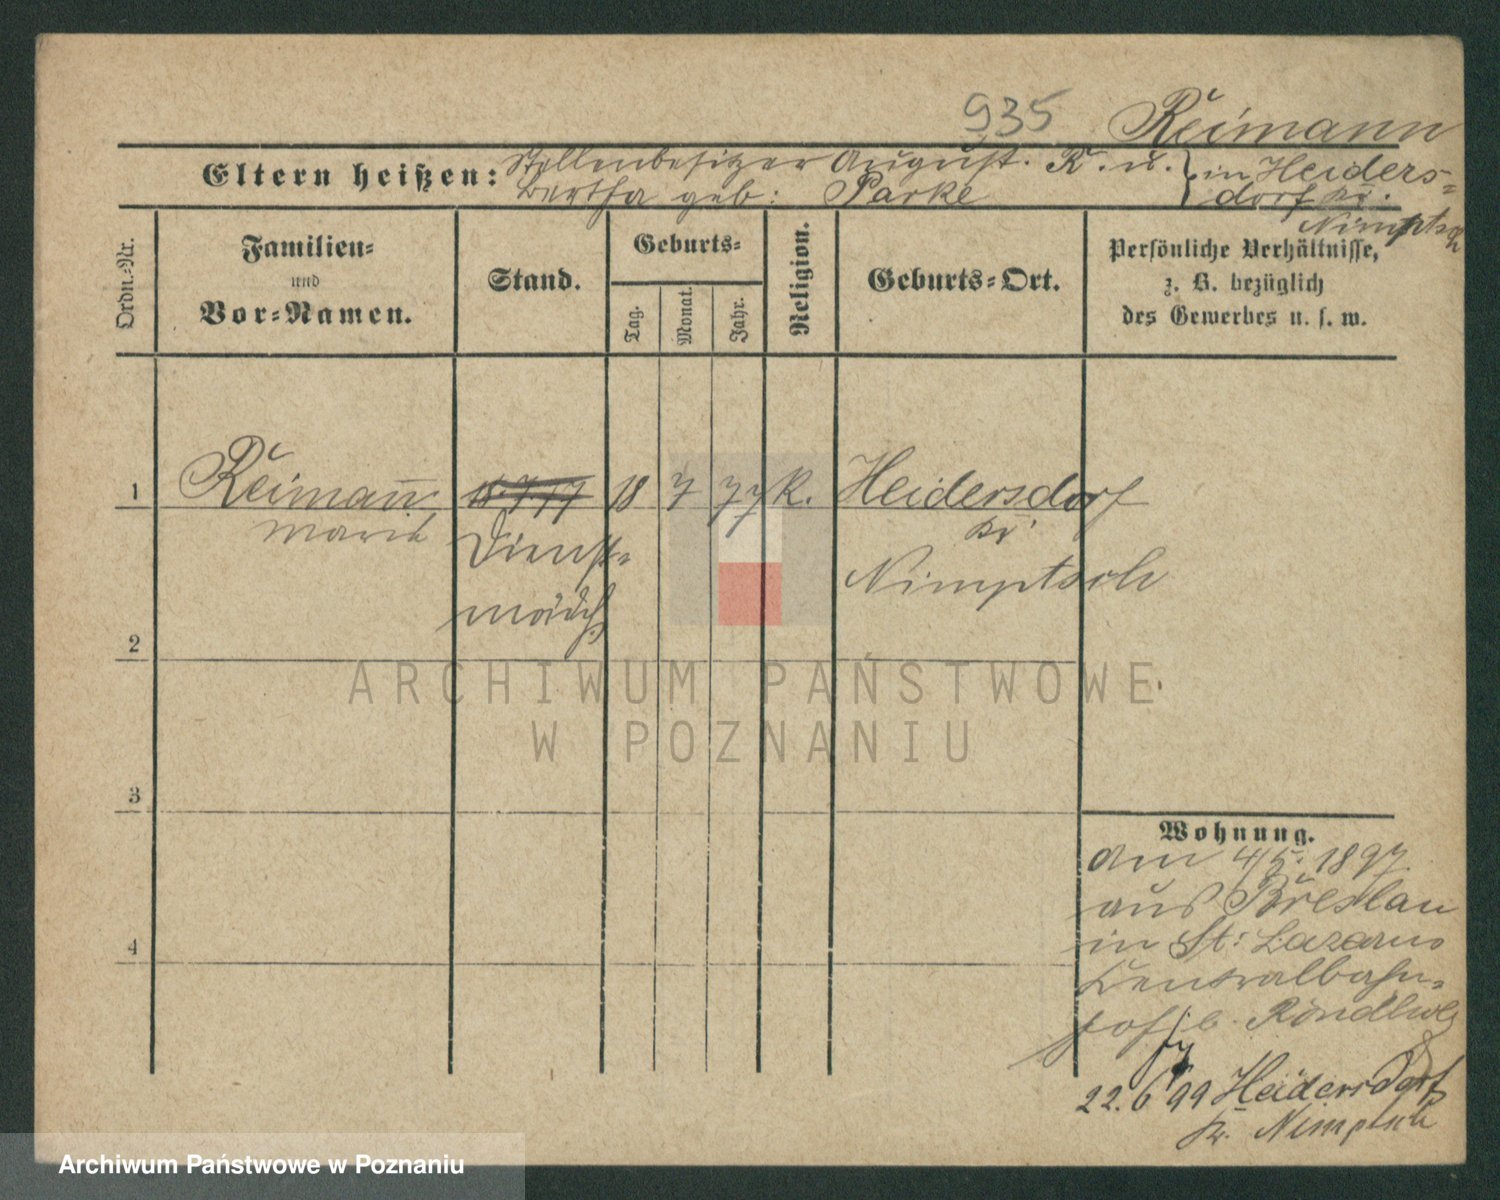 935 Reimann
Eltern heißen: Stellenbesitzer August. R. u. in Heiders-
Bertha geb: Parke dorf Kr.
Nimptsch
Ordn.-Nr.
Familien-
und
Vor-Namen.
Stand.
Geburts-
Tag.
Monat.
Jahr.
Religion.
Geburts-Ort.
Persönliche Verhältnisse,
z. B. bezüglich
des Gewerbes u. s. w.
1 Reimann 18.7.77 18 7 77 K. Heidersdorf
Marie Dienst- Kr
mädch. Nimptsch
2
3
4
Wohnung.
am 4/5. 1897.
aus Breslau
in St: Lazarus
Centralbahn-
hof b.
22.6 99 Heidersdorf
Kr. Nimptsch
ARCHIWUM PAŃSTWOWE
W POZNANIU
Archiwum Państwowe w Poznaniu